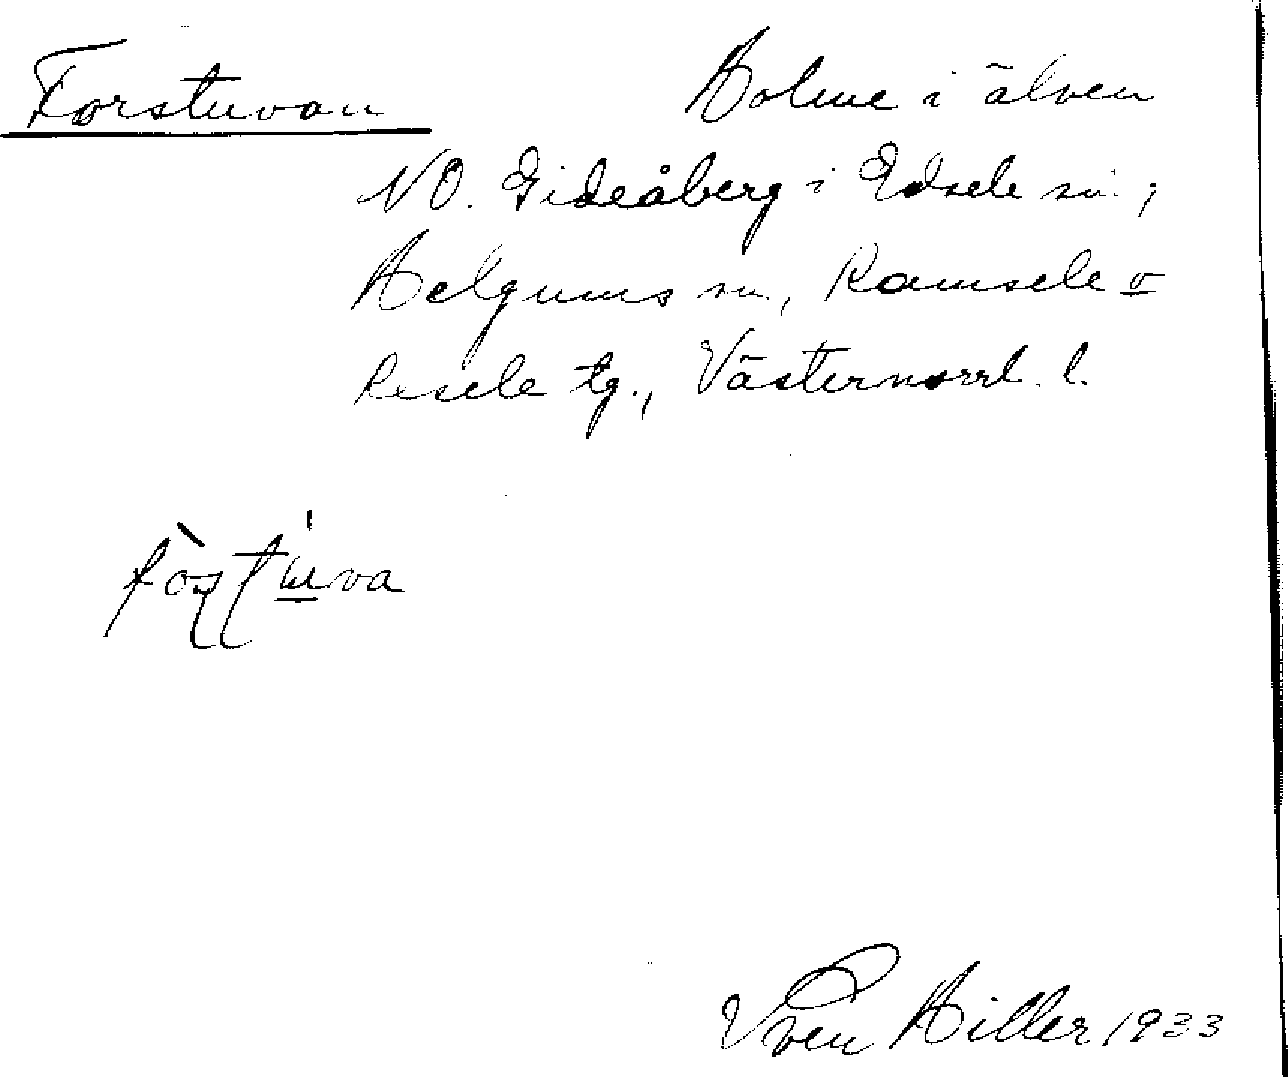 Forstuvan Holme i älven
NO. Gideåberg i Edsele sn.,
Helgums sn., Ramsele o
Resele tg., Västernorrl. l.
Sven Hiller 1933